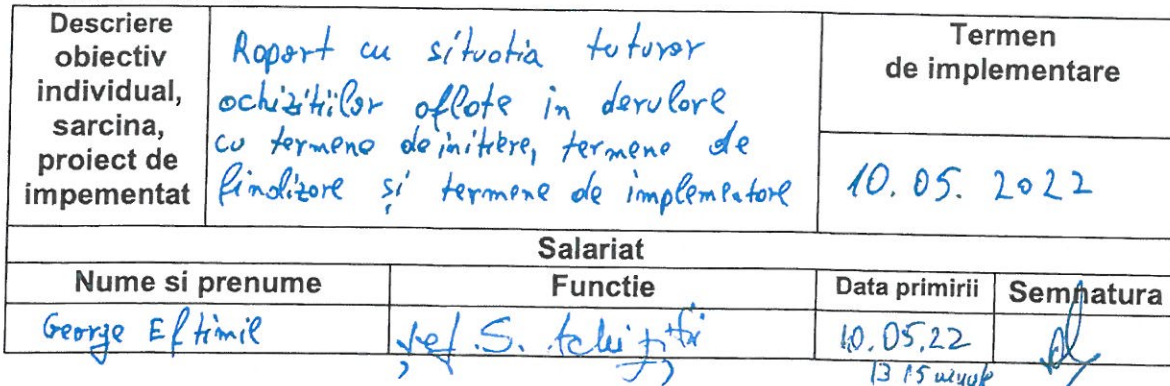 Descriere
obiectiv
individual,
sarcina,
proiect de
impementat
Raport cu situatia tuturor
achizitiilor aflate in derulare
cu termene de initiere, termene de
finalizare și termene de implementare
Termen
de implementare
10.05.2022
Salariat
Nume si prenume
Functie
Data primirii
Semnatura
George Eftimie
șef S. Achiziții
10.05.22
13 15